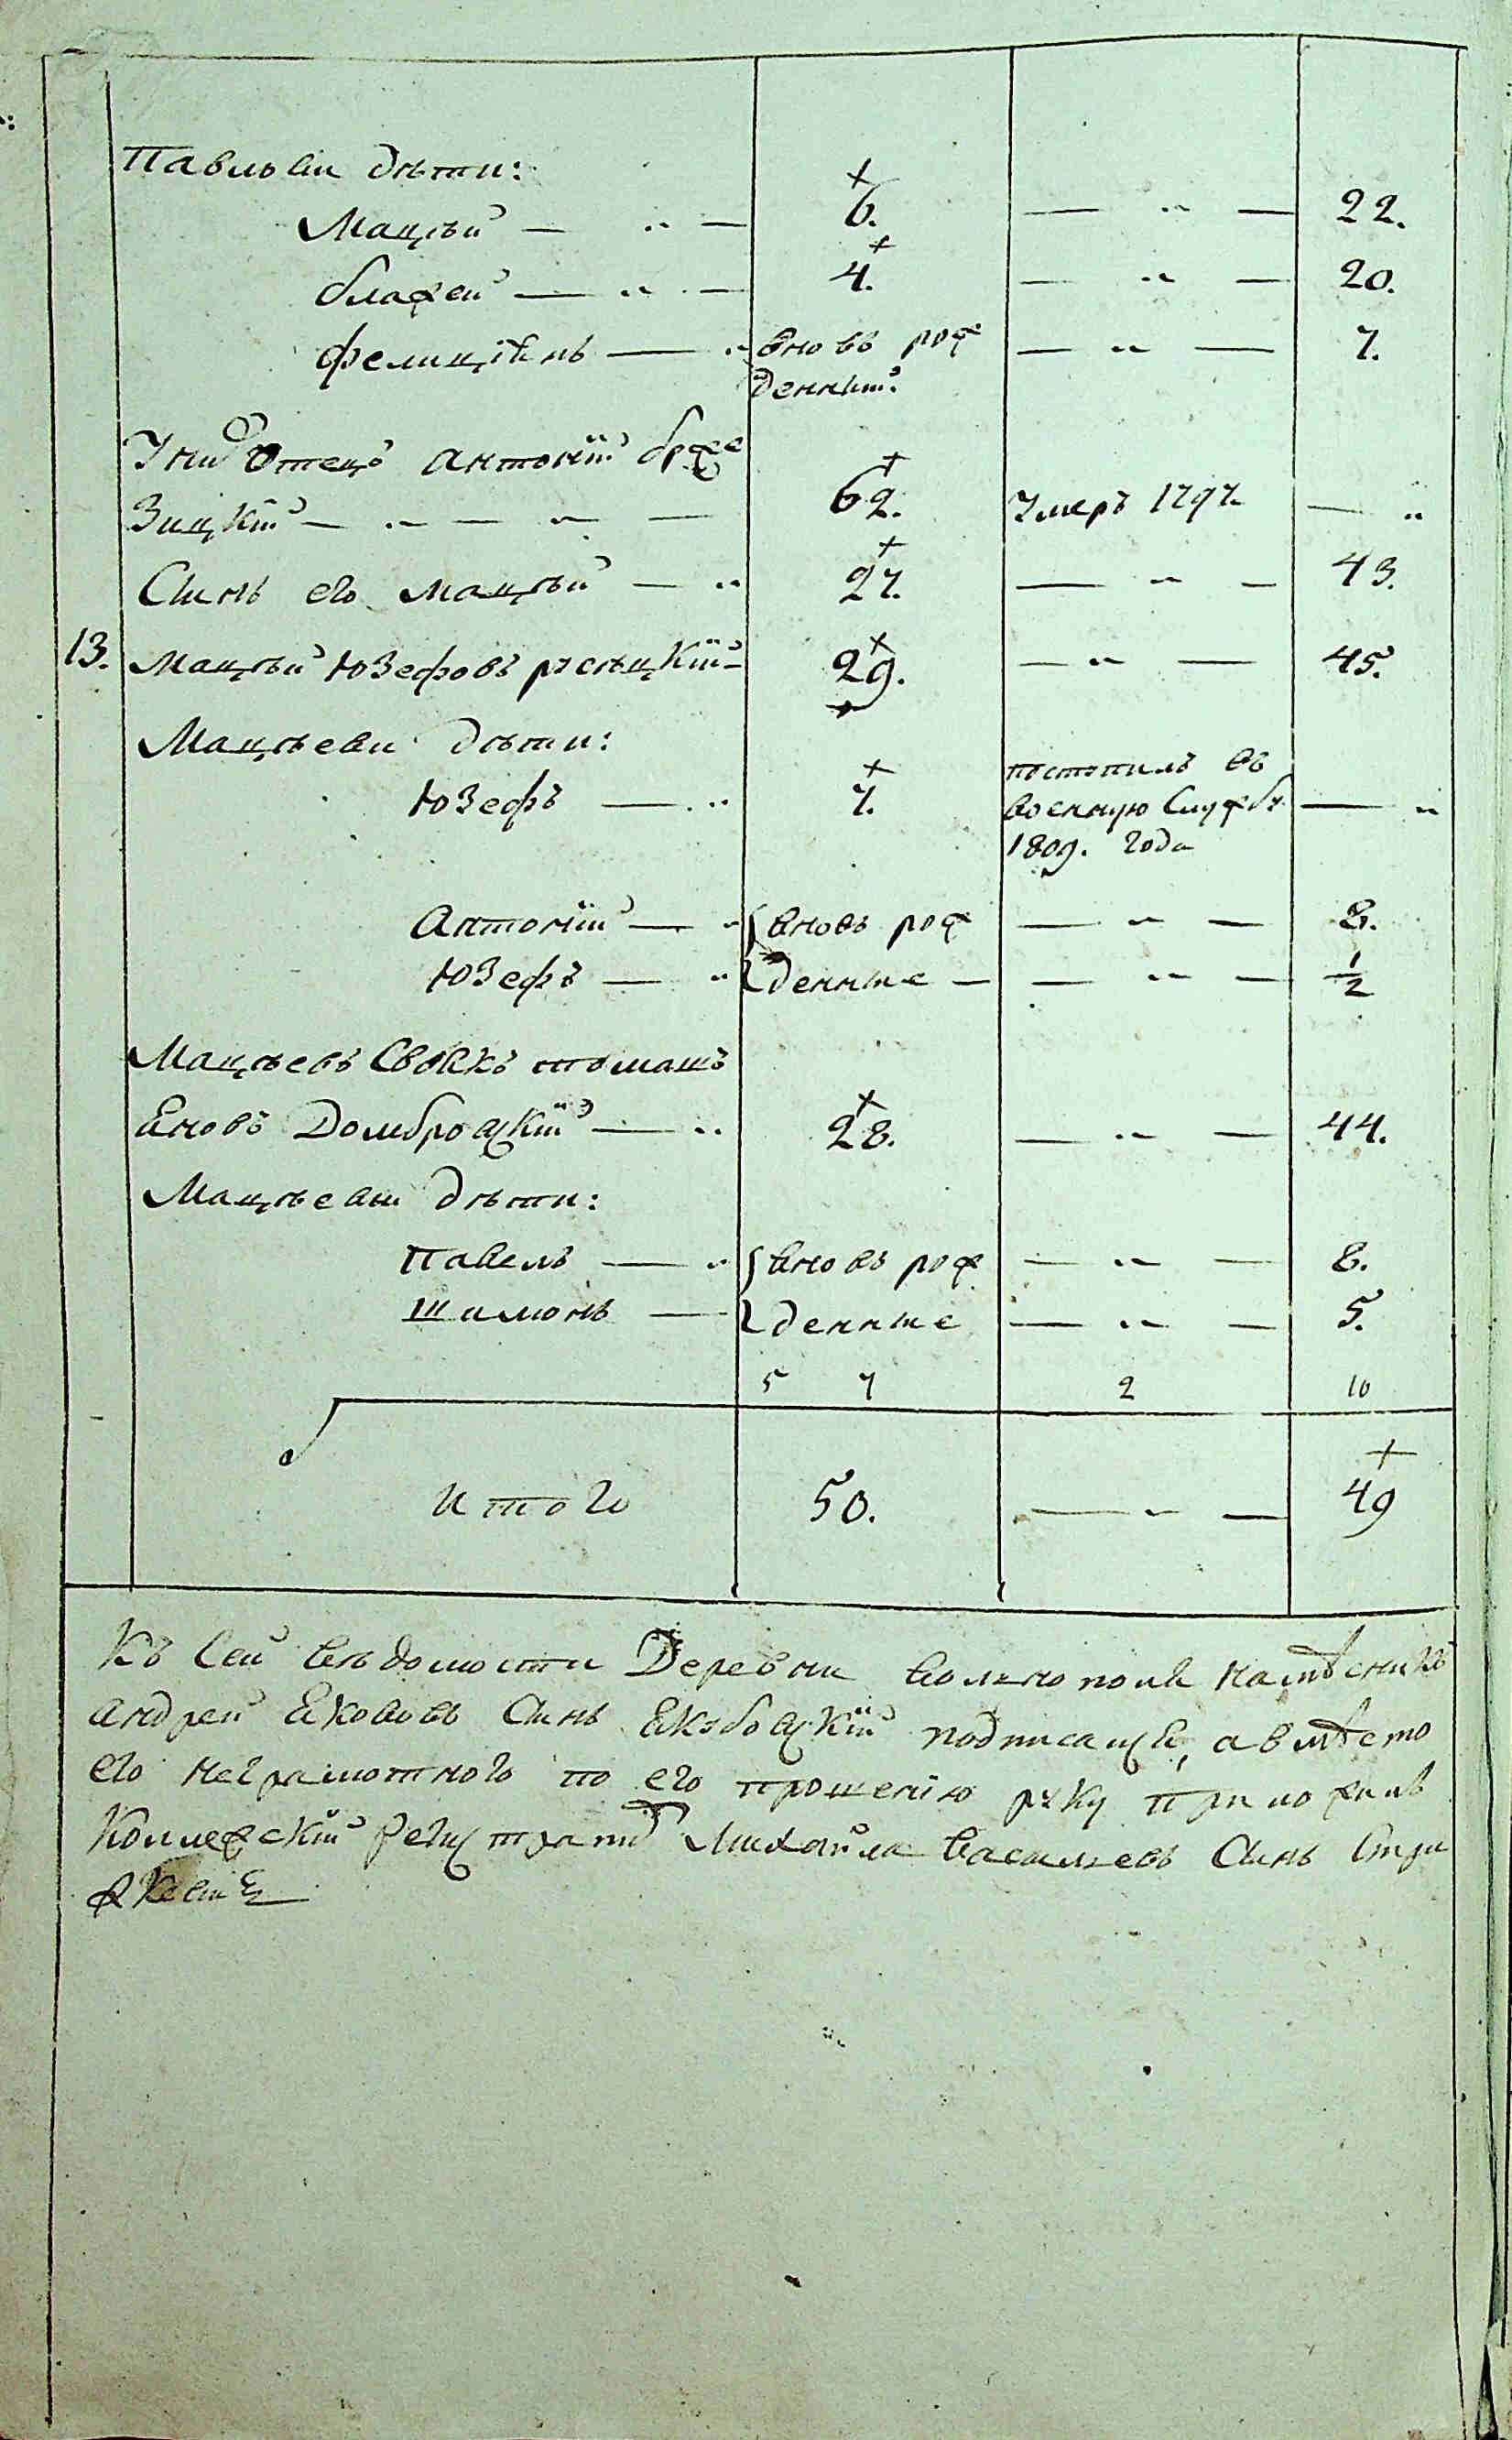 Павловы дѣти:
Мацѣй — „ — 6. — „ — 22.
Блажей — „ — 4. — „ — 20.
Фелиціанъ — „ вновь рож — „ — 7.
денный.
У нихъ Отецъ Антоній Брже
зицкій — „ — „ — 62. Умеръ 1797. — „
Сынъ его Мацѣй — „ 27. — „ — 43.
13. Мацѣй Юзефовъ Русѣцкій — 29. — „ — 45.
Мацѣевы дѣти:
Юзефъ — „ 7. поступилъ въ
военную Службу — „
1809. года
Антоній — „ вновь рож — „ — 8.
Юзефъ — „ денные — — „ — 1/2
Мацѣевъ Своякъ Томашъ
Яновъ Домбровскій — „ 28. — „ — 44.
Мацѣевы дѣти:
Павелъ — „ вновь рож — „ — 8.
Шимонъ — денные — „ — 5.
5 7 2 10
Итого 50. — „ — 49
Къ сей вѣдомости Деревни Вольнополя намѣсникъ
Андрей Якововъ Сынъ Якубовскій подписался, а вмѣсто
его неграмотного по его прошенію руку приложилъ
Коллежскій Регистраторъ Михайла Васильевъ Сынъ Стри
жевск